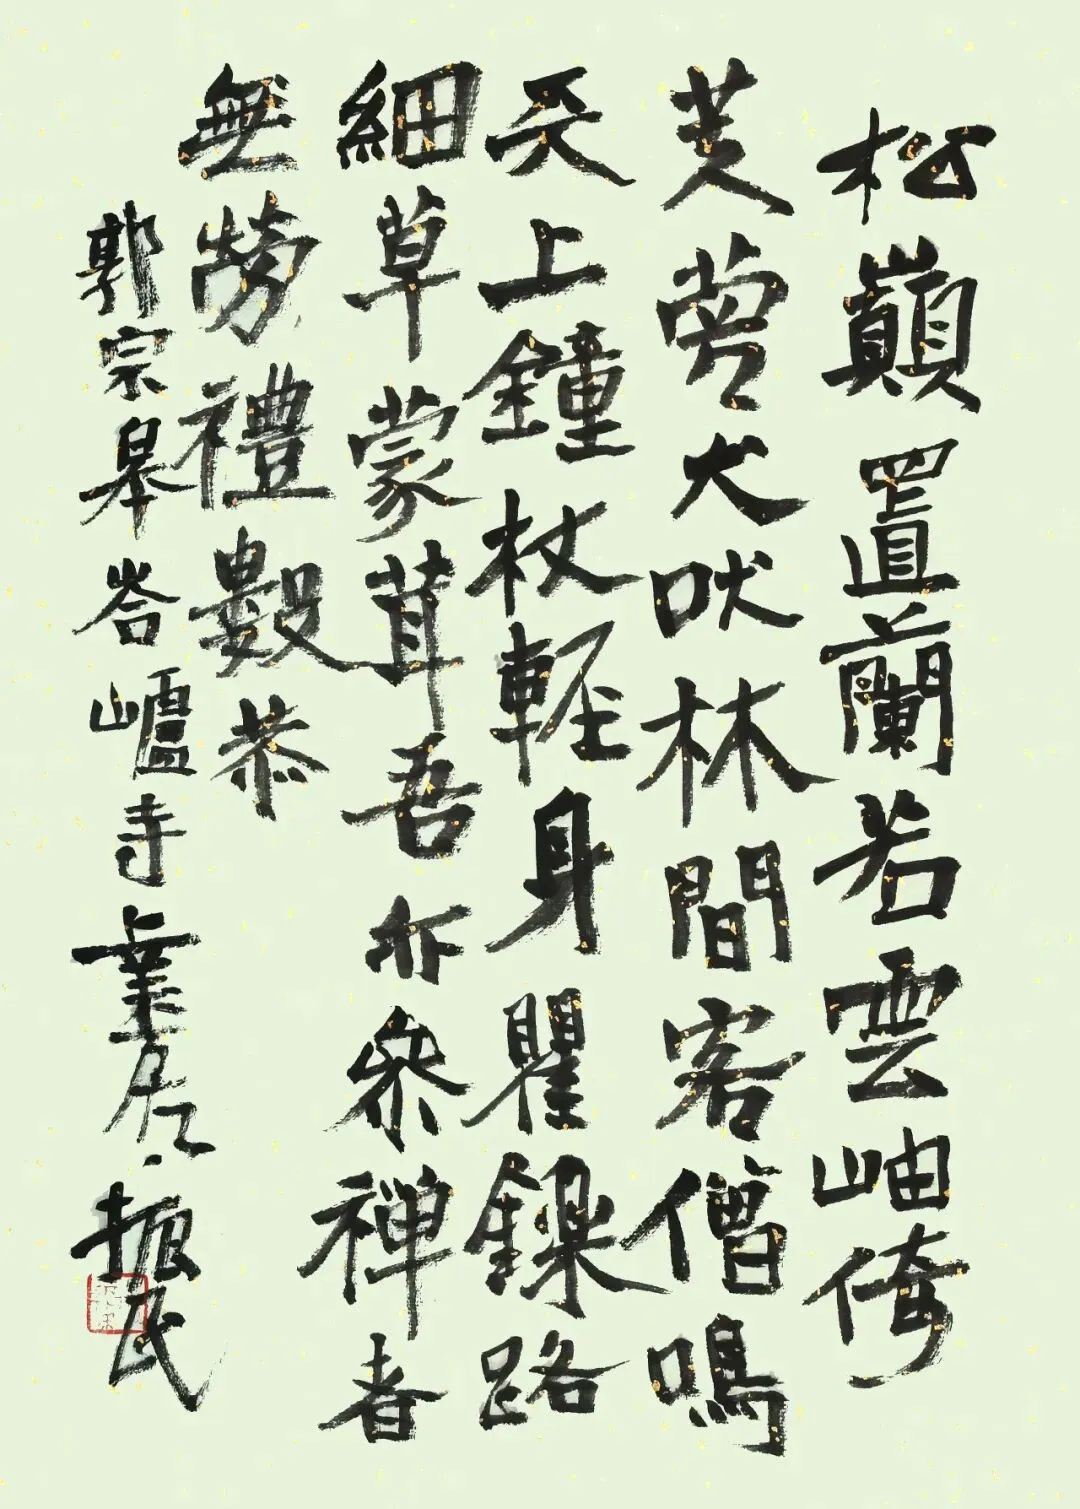 松巔置蘭若雲岫倚
芙蓉犬吠林間客僧鳴
天上鐘杖輕身矍鑠路
細草蒙茸吾亦參禪者
無勞禮數恭
郭宗皋峇㠠寺 振民